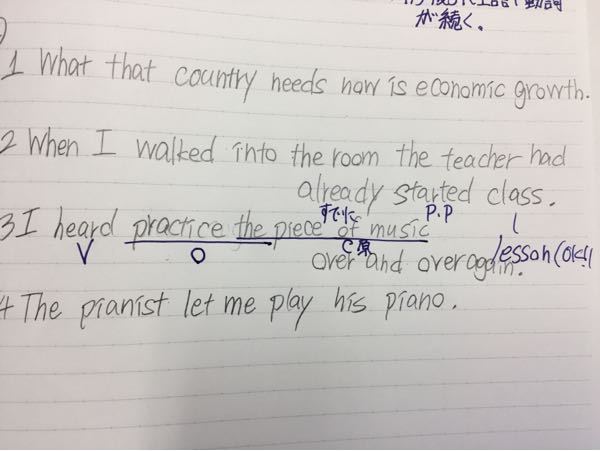 が続く。
1 What that country needs now is economic growth.
2 When I walked into the room the teacher had
already started class.
すでに P.P
3 I heard practice the piece of music
V O C 原 lesson(OK!!
over and over again.
4 The pianist let me play his piano.